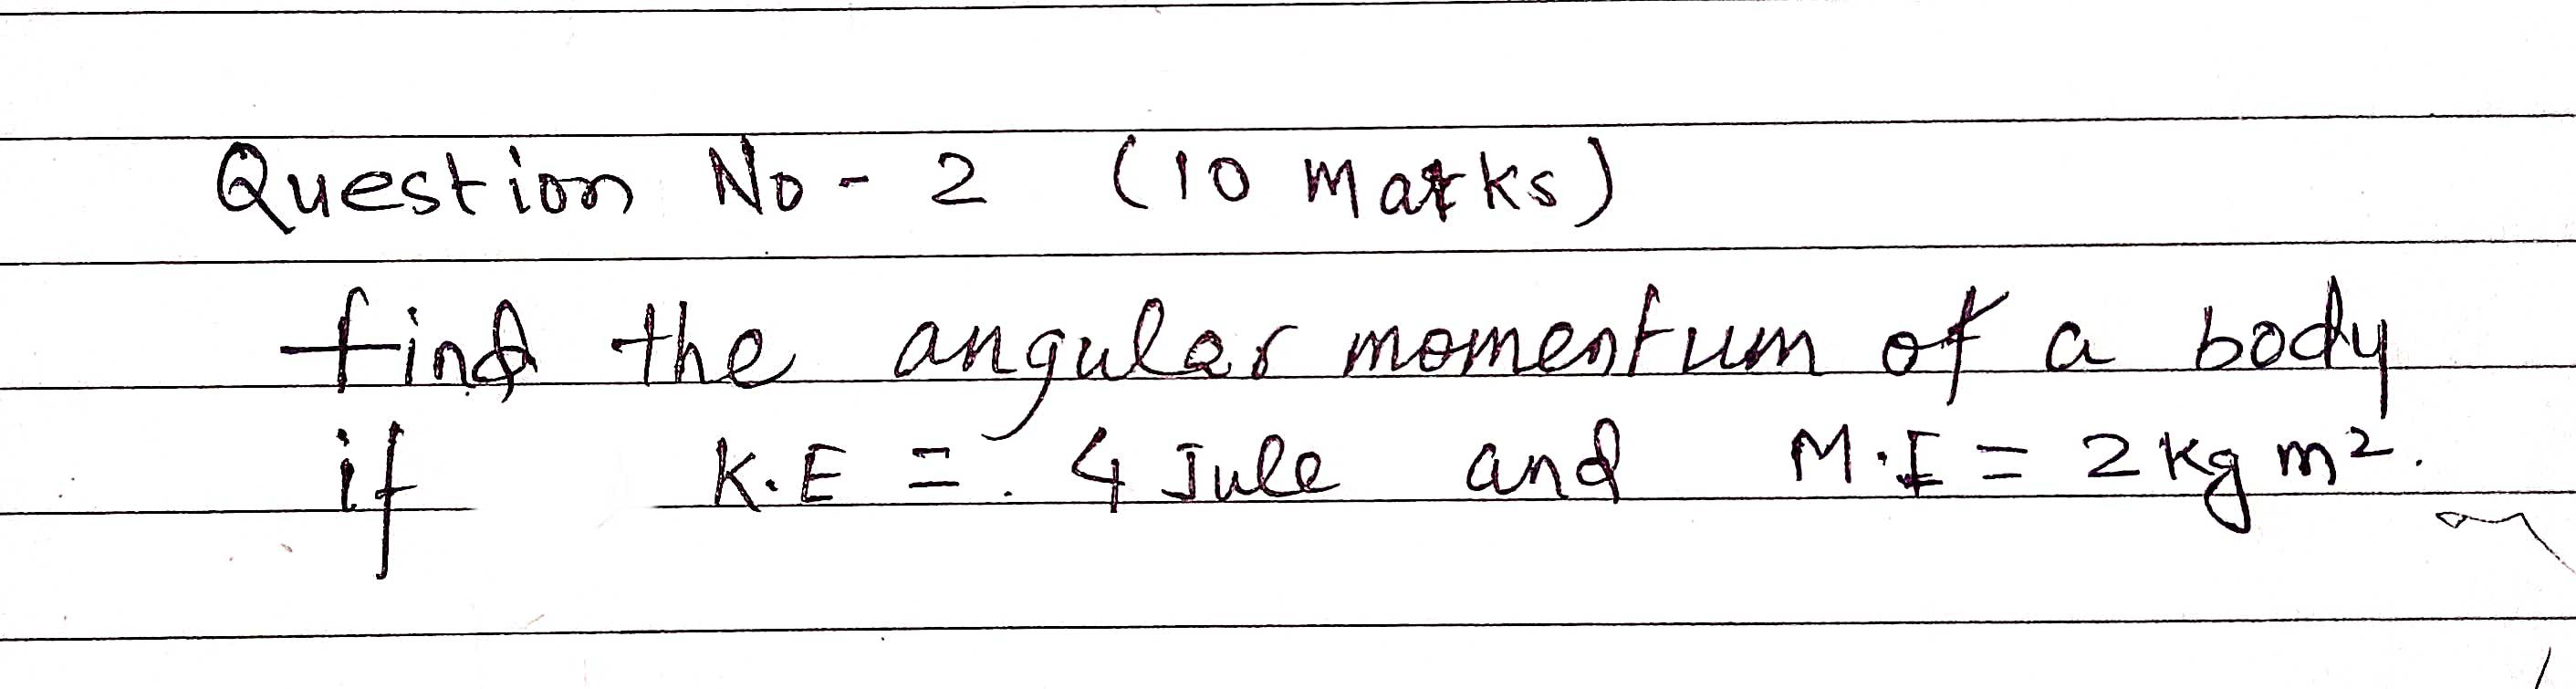 Question No - 2 (10 Marks)
find the angular momentum of a body
if K.E = . 4 Jule and M.I = 2 kg m².